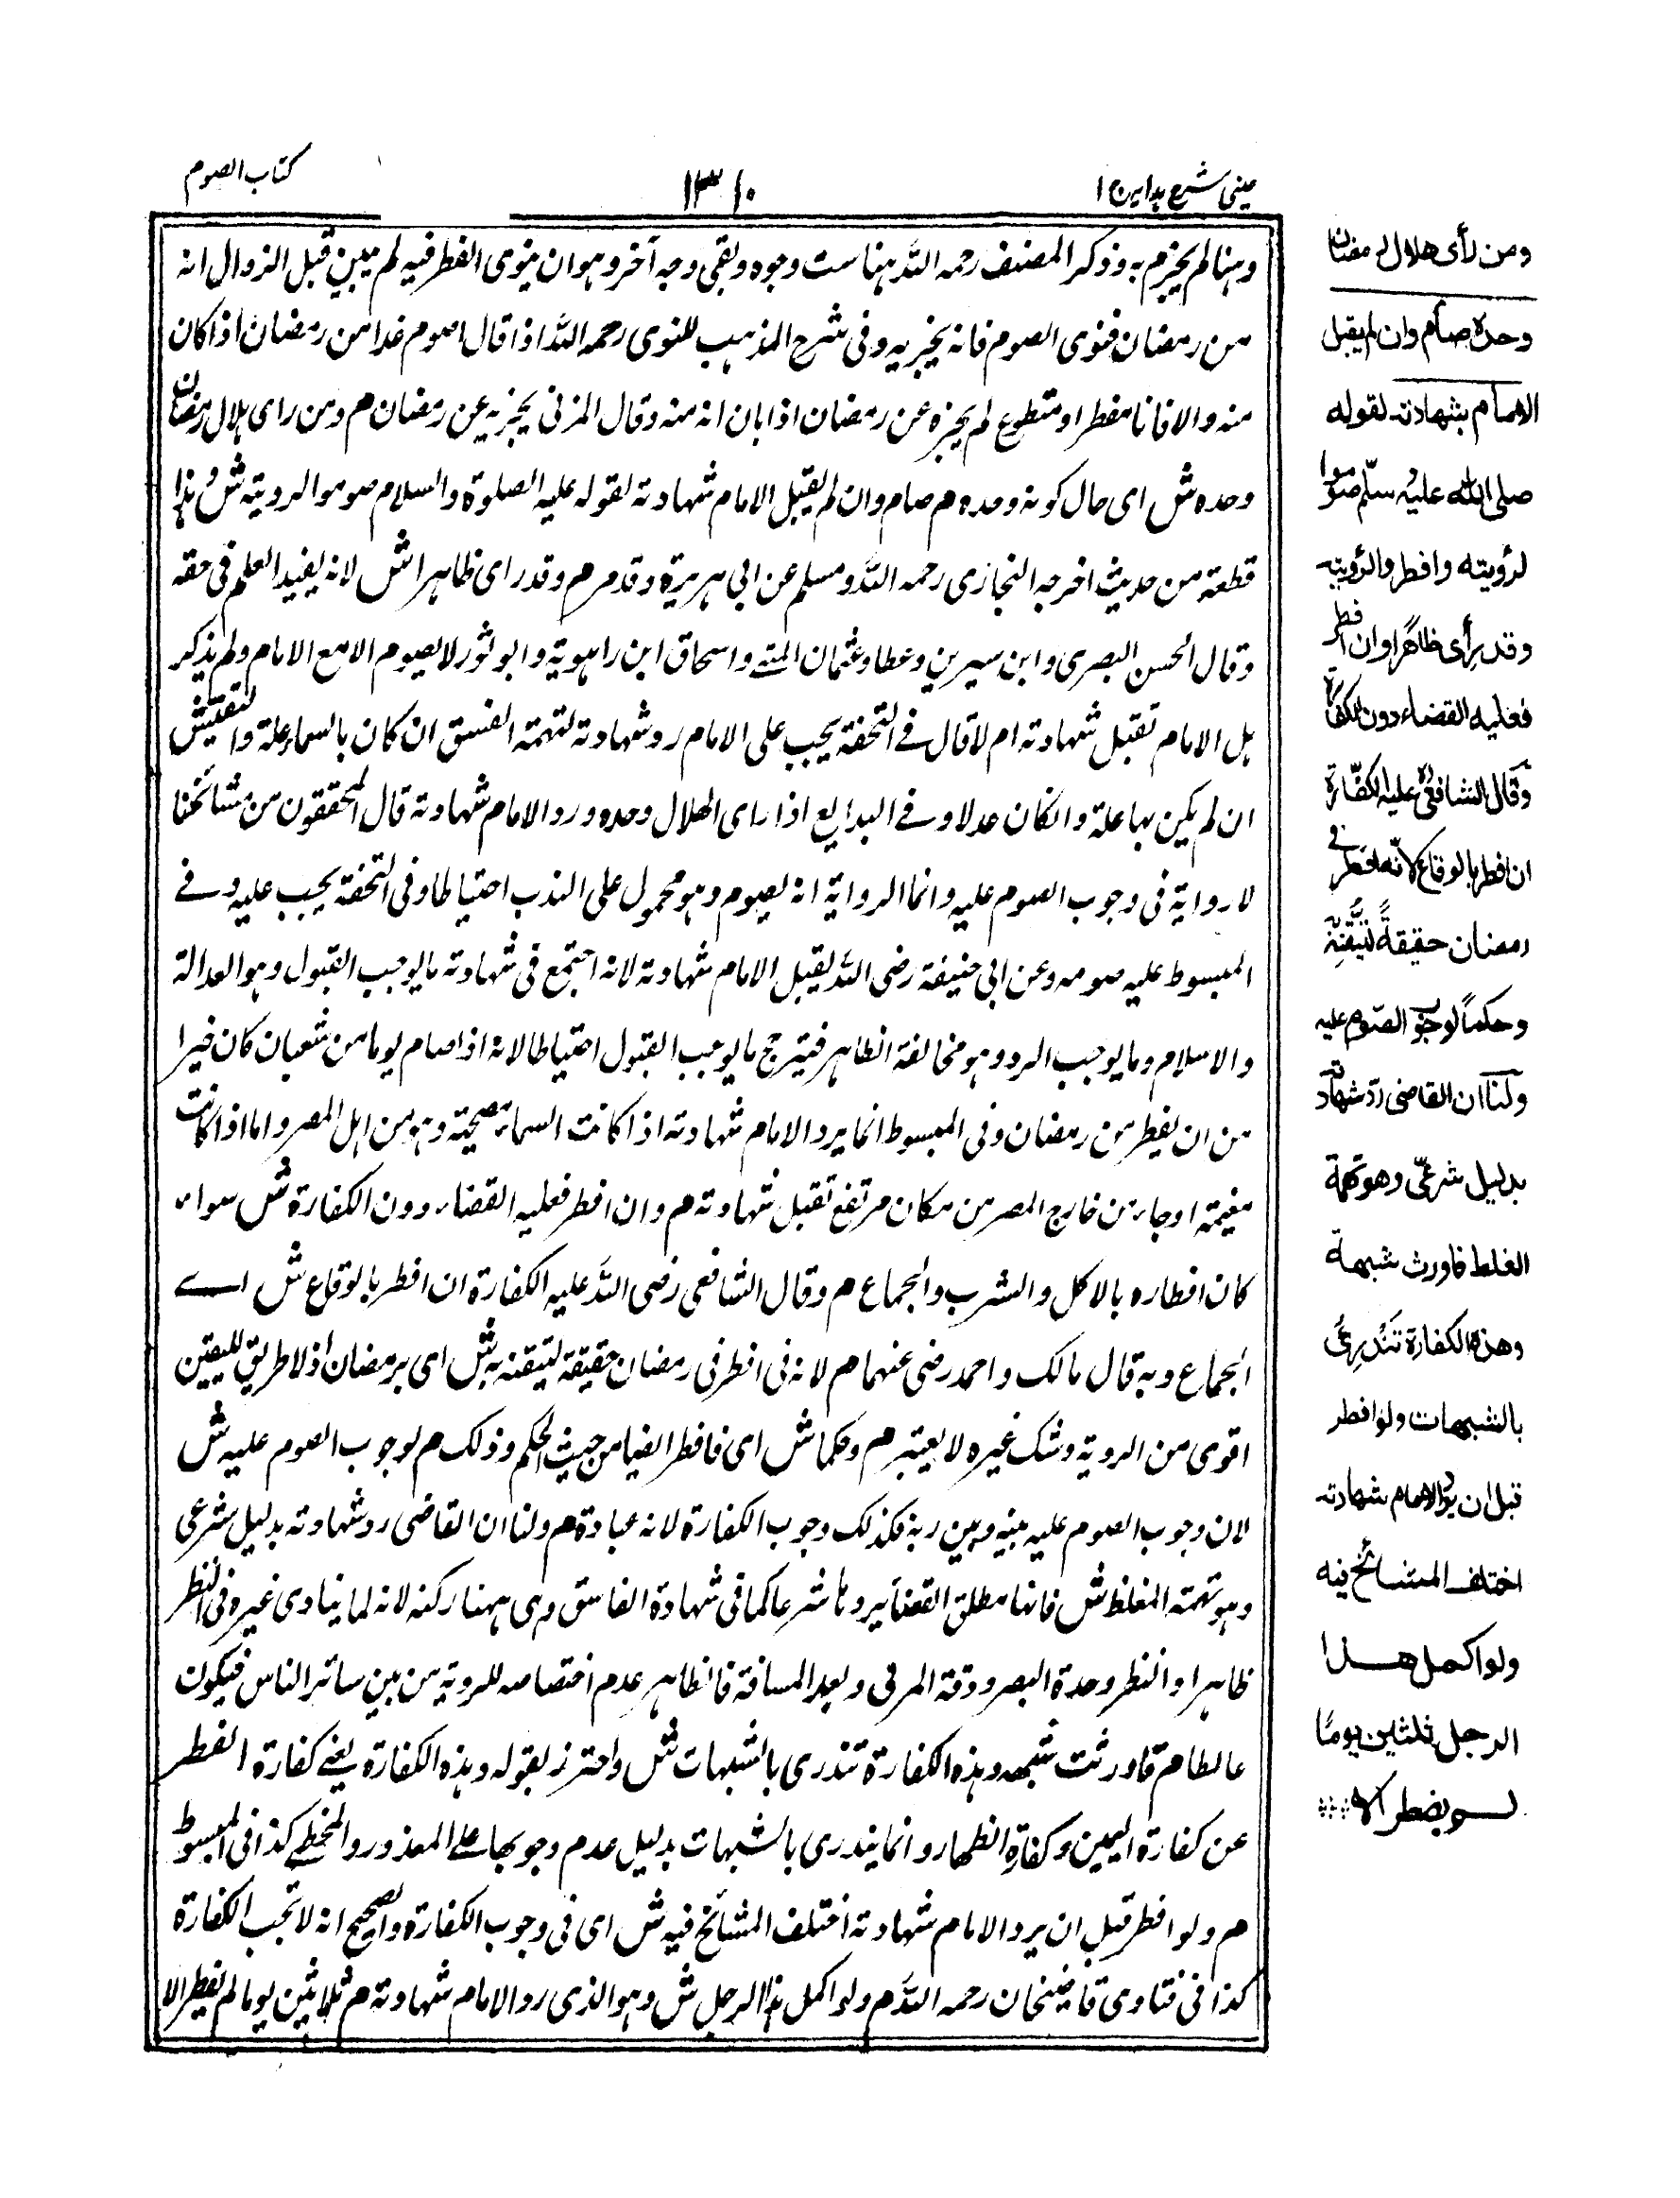 عینی شرح ہدایہ ج ۱
۱۳۱۰
کتاب الصوم
وہنا لم یجزم بہ وذکر المصنف رحمہ اللہ ہنا ست وجوہ وبقی وجہ آخر وہو ان ینوی الفطر فیہ لم یبین قبل الزوال انہ
من رمضان فنوی الصوم فانہ یجزیہ وفی شرح المذہب للنووی رحمہ اللہ اذا قال اصوم غدا من رمضان اذا کان
منہ والا فانا مفطر او متطوع لم یجزہ عن رمضان اذا بان انہ منہ وقال المزنی یجزیہ عن رمضان م ومن رای ہلال رمضان
وحدہ ش ای حال کونہ وحدہ م صام وان لم یقبل الامام شہادتہ لقولہ علیہ الصلوۃ والسلام صوموا لرویتہ ش ہذا
قطعۃ من حدیث اخرجہ البخاری رحمہ اللہ ومسلم عن ابی ہریرۃ وقد مر م وقد رای ظاہرا ش لانہ یفید العلم فی حقہ
وقال الحسن البصری وابن سیرین وعطا وعثمان البتی واسحاق ابن راہویۃ وابو ثور لا یصوم الا مع الامام ولم یذکر
ہل الامام تقبل شہادتہ ام لا قال فی التحفۃ یجب علی الامام رد شہادتہ لتہمتہ الفسق ان کان بالسماء علۃ والتفتیش
ان لم یکن بہا علۃ وانکان عدلا وفی البدایع اذا رای الہلال وحدہ ورد الامام شہادتہ قال المحققون من مشائخنا
لا روایۃ فی وجوب الصوم علیہ وانما الروایۃ انہ یصوم وہو محمول علی الندب احتیاطا وفی التحفۃ یجب علیہ وفی
المبسوط علیہ صومہ وعن ابی حنیفۃ رضی اللہ یقبل الامام شہادتہ لانہ اجتمع فی شہادتہ ما یوجب القبول وہو العدالۃ
والاسلام وما یوجب الرد وہو مخالفۃ الظاہر فیترجح ما یوجب القبول احتیاطا لانہ اذا صام یوما من شعبان کان خیرا
من ان یفطر من رمضان وفی المبسوط انما یرد الامام شہادتہ اذا کانت السماء مصحیۃ وہو من اہل المصر واما اذا کانت
مغیمۃ او جاء من خارج المصر من مکان مرتفع تقبل شہادتہ م وان افطر فعلیہ القضاء دون الکفارۃ ش سواء
کان افطارہ بالاکل والشرب والجماع م وقال الشافعی رضی اللہ علیہ الکفارۃ ان افطر بالوقاع ش اے
الجماع وبہ قال مالک واحمد رضی عنہما م لانہ فی افطر فی رمضان حقیقۃ لتیقنہ بہ ش ای برمضان اذ لا طریق للیقین
اقوی من الرویۃ وشک غیرہ لا یعتبر م وحکما ش ای فافطر ایضا من حیث الحکم وذلک م لوجوب الصوم علیہ ش
لان وجوب الصوم علیہ بینہ وبین ربہ فکذلک وجوب الکفارۃ لانہ عبادۃ م ولنا ان القاضی رد شہادتہ بدلیل شرعی
وہو تہمتہ الغلط ش فانہا مطلق القضاء یرد بہا شرعا کما فی شہادۃ الفاسق وہی ہہنا رکنہ لانہ لما یساوی غیرہ فی النظر
ظاہرا والنظر وحدۃ البصر ودقۃ المرئی وبعد المسافۃ فالظاہر عدم اختصاصہ للرویۃ من بین سائر الناس فیکون
غالطا م فاورثت شبہہ وہذہ الکفارۃ تندری بالشبہات ش واحترز بقولہ وہذہ الکفارۃ یعنے کفارۃ الفطر
عن کفارۃ الیمین وکفارۃ الظہار وانما یندری بالشبہات بدلیل عدم وجوبہا علی المعذور والمخطی کذا فی المبسوط
م ولو افطر قبل ان یرد الامام شہادتہ اختلف المشائخ فیہ ش ای فی وجوب الکفارۃ والصحیح انہ لا تجب الکفارۃ
کذا فی فتاوی قاضیخان رحمہ اللہ م ولو اکمل ہذا الرجل ش وہو الذی رد الامام شہادتہ م ثلاثین یوما لم یفطر الا
ومن رأی ھلال رمضان
وحدہ صام وان لم یقبل
الامام بشھادتہ لقولہ
صلی اللہ علیہ وسلم صوموا
لرؤیتہ وافطروا لرؤیتہ
وقد رأی ظاھرًا وان افطر
فعلیہ القضاء دون الکفارۃ
وقال الشافعی علیہ الکفّارۃ
ان افطر بالوقاع لانّہ افطر فی
رمضان حقیقۃً لتیقّنہٖ بہ
وحکماً لوجوب الصّوم علیہ
ولنا ان القاضی ردّ شھادتہ
بدلیل شرعیّ وھو تھمۃ
الغلط فاورث شبھۃ
وھذہ الکفارۃ تندرئُ
بالشبھات ولو افطر
قبل ان یردّ الامام شھادتہ
اختلف المشائخ فیہ
ولو اکمل ھذا
الرجل ثلثین یومًا
لم یفطر الا